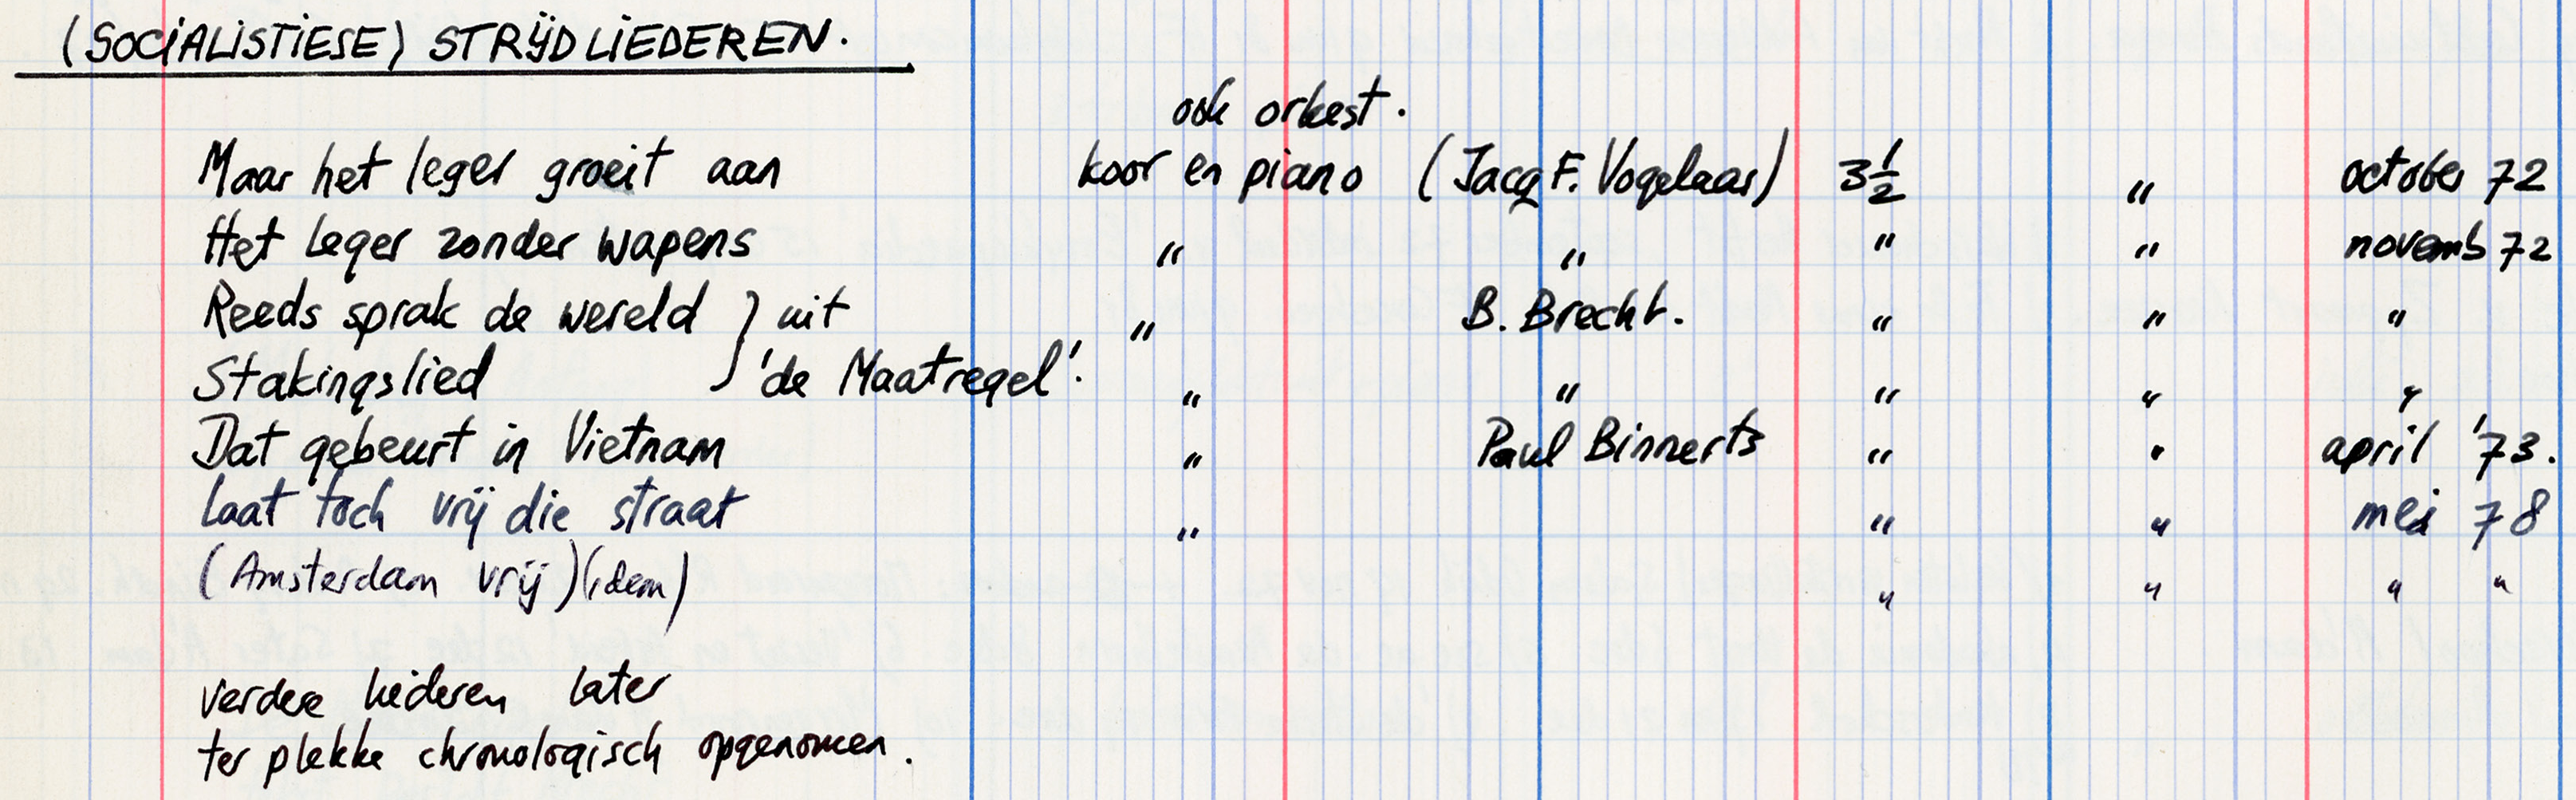 (SOCIALISTIESE) STRIJDLIEDEREN.
ook orkest.
Maar het leger groeit aan koor en piano (Jacq F. Vogelaar) 3 1/2 " october 72
Het leger zonder wapens " " " " novemb 72
Reeds sprak de wereld } uit " B. Brecht. " " "
Stakingslied 'de Maatregel'. " " " " "
Dat gebeurt in Vietnam " Paul Binnerts " " april '73.
Laat toch vrij die straat " " " mei 78
(Amsterdam vrij) (idem) " " " "
verdere liederen later
ter plekke chronologisch opgenomen.